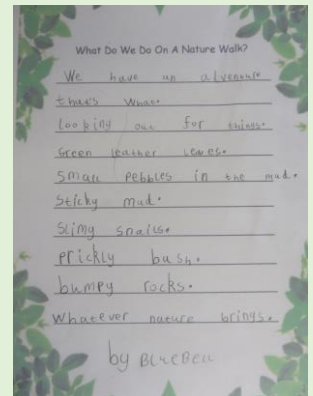 What Do We Do On A Nature Walk?
We have an adventure
that's what.
Looking out for things.
Green leather leaves.
Small pebbles in the mud.
Sticky mud.
Slimy snails.
Prickly bush.
bumpy rocks.
Whatever nature brings.
by